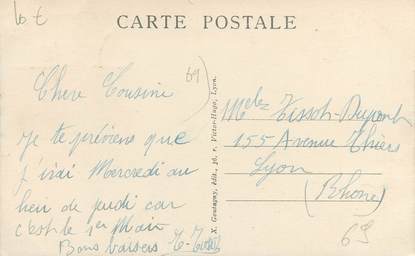 CARTE POSTALE
Chere Cousine
Je te préviens que
j'irai Mercredi au
lieu de jeudi car
c'est le 1er Mai
Bons baisers
X. Goutagny, édit., 36, r. Victor-Hugo, Lyon.
69
Tissot-Dupont
155 Avenue Thiers
Lyon
(Rhône)
69